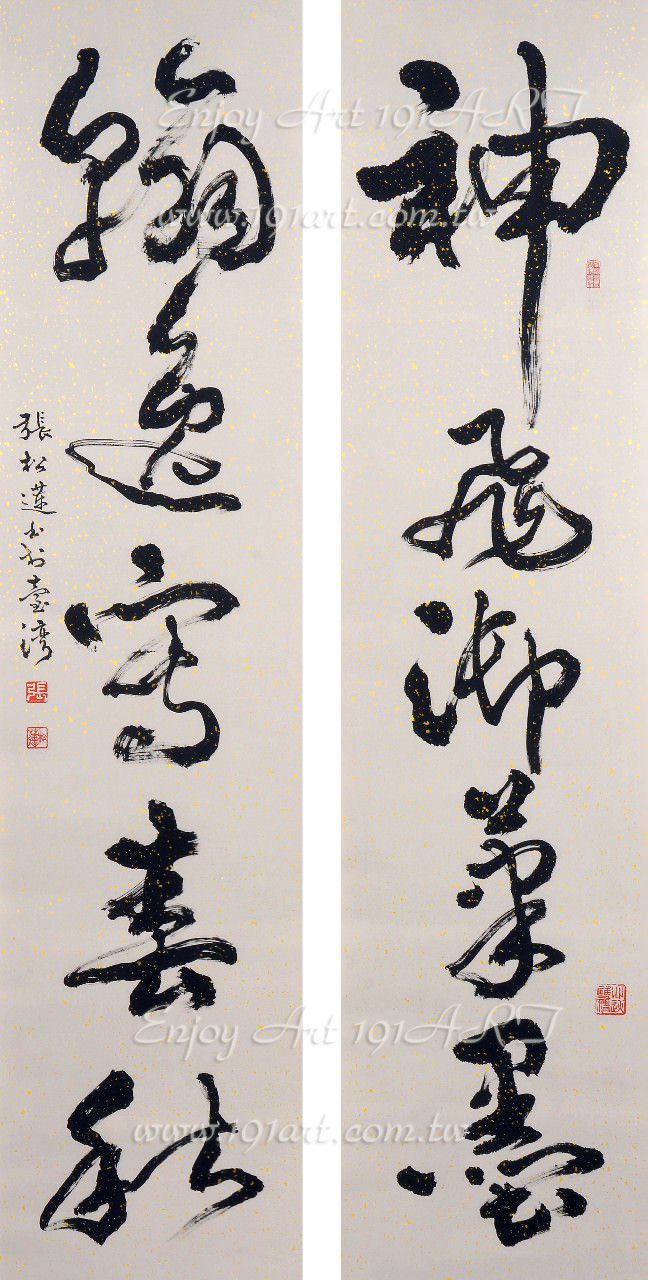 神飛御筆墨
翰逸寫春秋
張松蓮書於臺灣
張
Enjoy Art 191ART
www.191art.com.tw
Enjoy Art 191ART
www.191art.com.tw